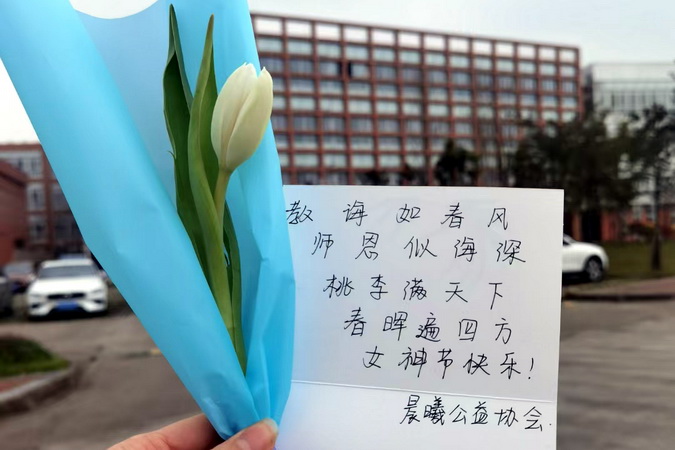 教诲如春风
师恩似海深
桃李满天下
春晖遍四方
女神节快乐!
晨曦公益协会.